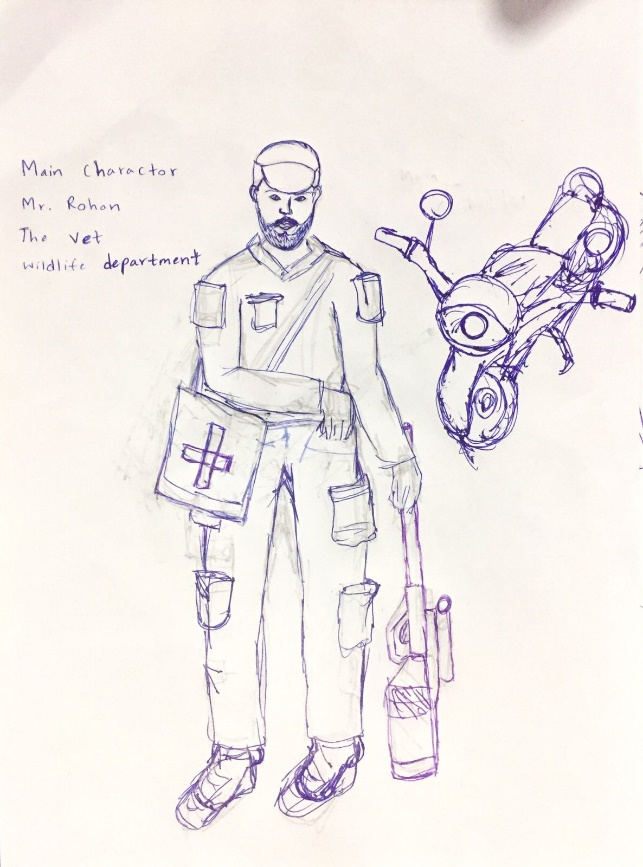 Main Charactor
Mr. Rohan
The Vet
Wildlife department